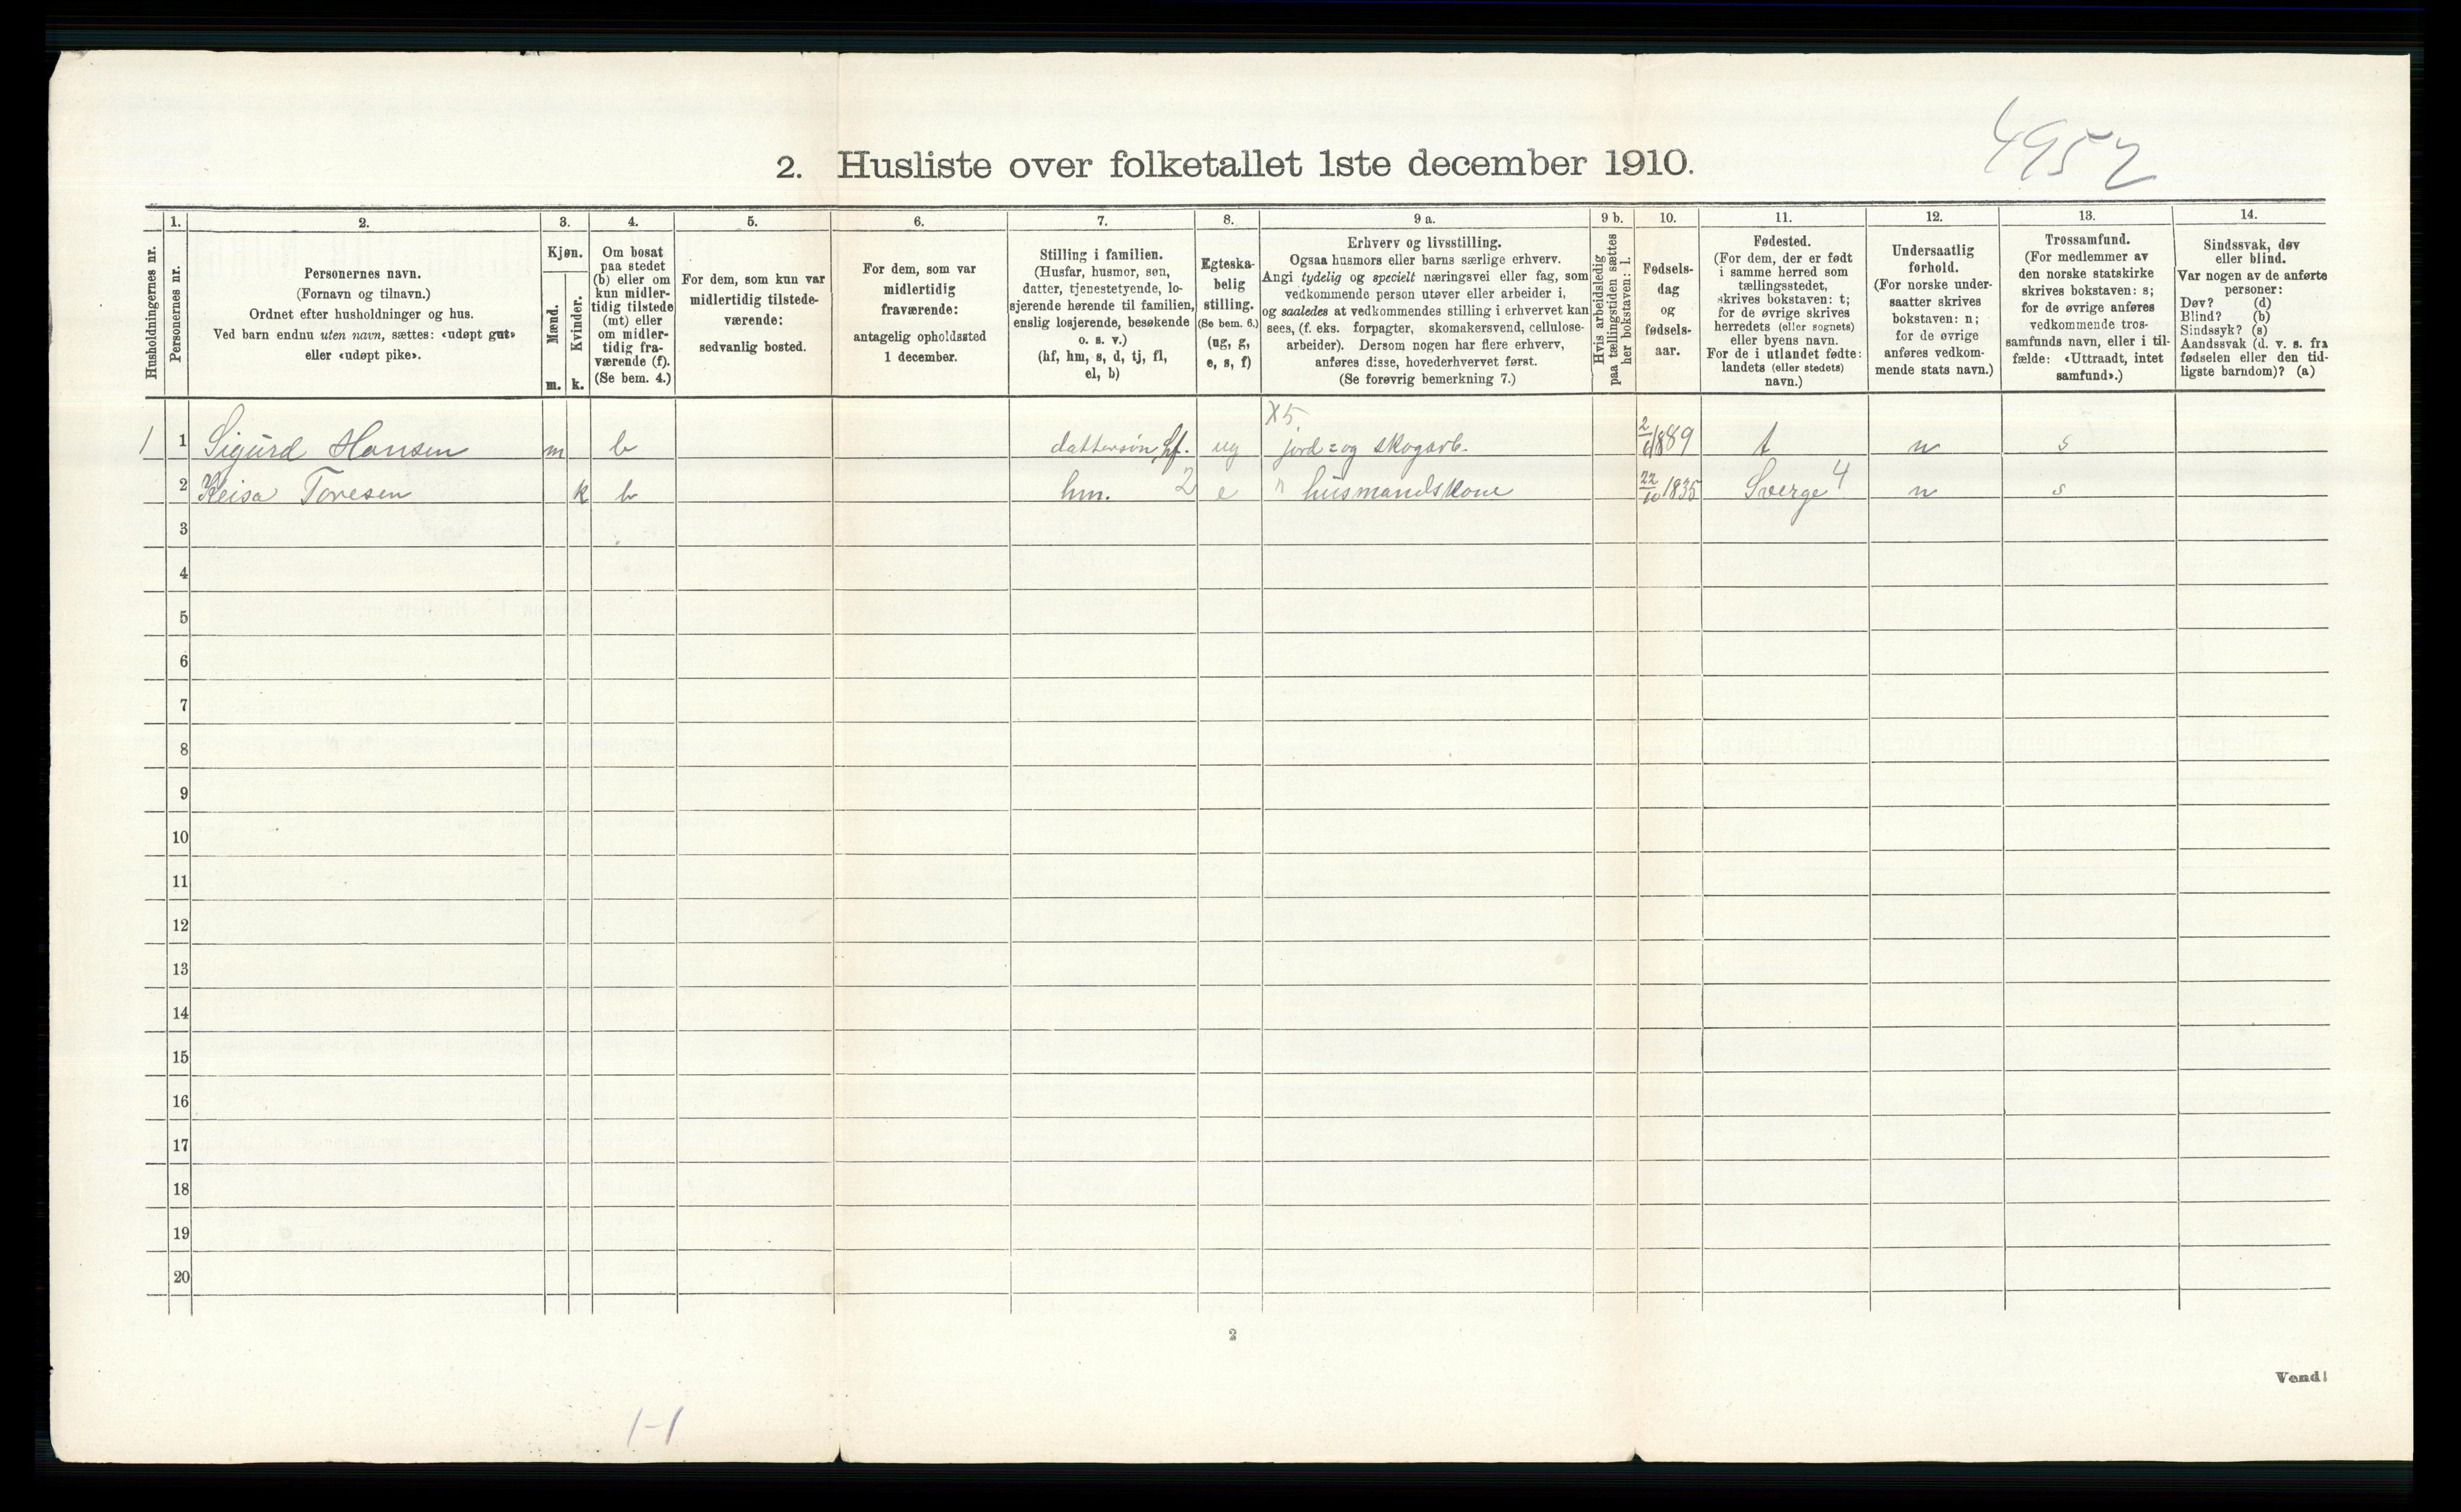 4952
2. Husliste over folketallet 1ste december 1910.
Husholdningernes nr.
1.
Personernes nr.
2.
Personernes navn.
(Fornavn og tilnavn.)
Ordnet efter husholdninger og hus.
Ved barn endnu uten navn, sættes: «udøpt gut»
eller «udøpt pike».
3.
Kjøn.
Mænd.
Kvinder.
m. k.
4.
Om bosat
paa stedet
(b) eller om
kun midler-
tidig tilstede
(mt) eller
om midler-
tidig fra-
værende (f).
(Se bem. 4.)
5.
For dem, som kun var
midlertidig tilstede-
værende:
sedvanlig bosted.
6.
For dem, som var
midlertidig
fraværende:
antagelig opholdssted
1 december.
7.
Stilling i familien.
(Husfar, husmor, søn,
datter, tjenestetyende, lo-
sjerende hørende til familien,
enslig losjerende, besøkende
o. s. v.)
(hf, hm, s, d, tj, fl,
el, b)
8.
Egteska-
belig
stilling.
(Se bem. 6.)
(ug, g,
e, s, f)
9 a.
Erhverv og livsstilling.
Ogsaa husmors eller barns særlige erhverv.
Angi tydelig og specielt næringsvei eller fag, som
vedkommende person utøver eller arbeider i,
og saaledes at vedkommendes stilling i erhvervet kan
sees, (f. eks. forpagter, skomakersvend, cellulose-
arbeider). Dersom nogen har flere erhverv,
anføres disse, hovederhvervet først.
(Se forøvrig bemerkning 7.)
9 b.
Hvis arbeidsledig
paa tællingstiden sættes
her bokstaven: l.
10.
Fødsels-
dag
og
fødsels-
aar.
11.
Fødested.
(For dem, der er født
i samme herred som
tællingsstedet,
skrives bokstaven: t;
for de øvrige skrives
herredets (eller sognets)
eller byens navn.
For de i utlandet fødte:
landets (eller stedets)
navn.)
12.
Undersaatlig
forhold.
(For norske under-
saatter skrives
bokstaven: n;
for de øvrige
anføres vedkom-
mende stats navn.)
13.
Trossamfund.
(For medlemmer av
den norske statskirke
skrives bokstaven: s;
for de øvrige anføres
vedkommende tros-
samfunds navn, eller i til-
fælde: «Uttraadt, intet
samfund».)
14.
Sindssvak, døv
eller blind.
Var nogen av de anførte
personer:
Døv? (d)
Blind? (b)
Sindssyk? (s)
Aandssvak (d. v. s. fra
fødselen eller den tid-
ligste barndom)? (a)
X5.
1 1 Sigurd Hansen m b dattersøn hf. ug jord= og skogarb. 2/6 1889 t n s
2 Keisa Toresen k b hm. 2 e " husmandskone 22/10 1835 Sverge 4 n s
3
4
5
6
7
8
9
10
11
12
13
14
15
16
17
18
19
20
2
Vend!
1-1